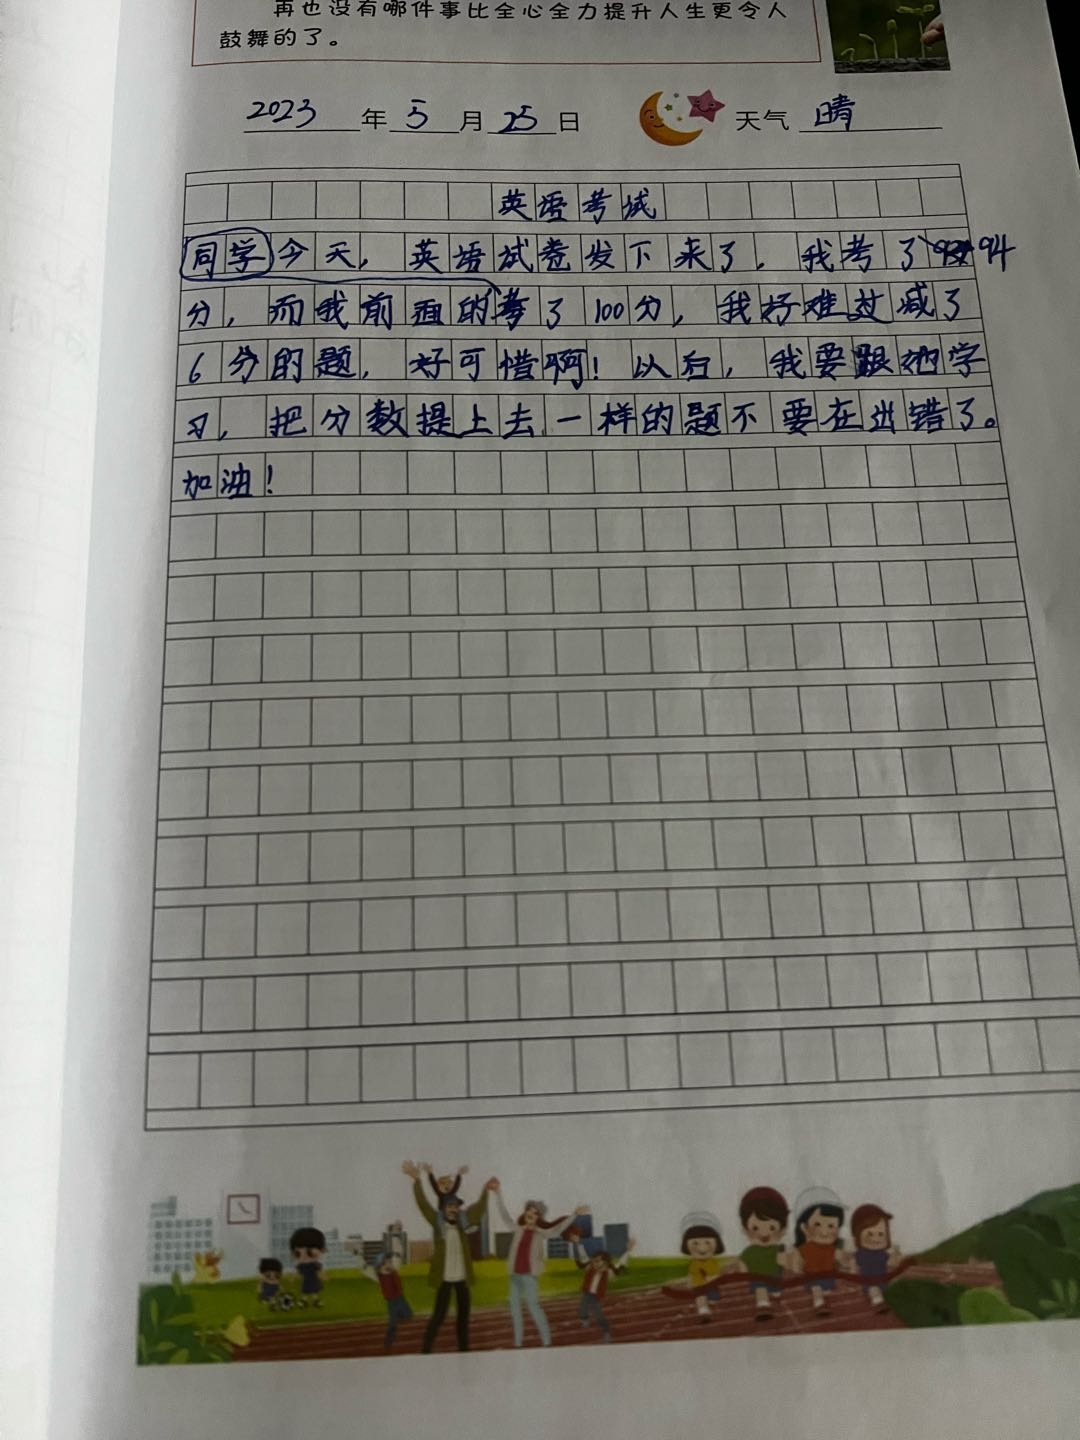 再也没有哪件事比全心全力提升人生更令人
鼓舞的了。
2023年5月25日 天气 晴
英语考试
同学今天，英语试卷发下来了，我考了94
分，而我前面的考了100分，我好难过减了
6分的题，好可惜啊！以后，我要跟她学
习，把分数提上去一样的题不要在出错了。
加油！